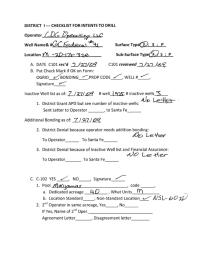 DISTRICT I --- CHECKLIST FOR INTENTS TO DRILL
Operator LDC Operating LLC
Well Name& # Federal # Surface Type (F) S P
Location Sub-Surface Type (F) S P
A. DATE C101 rec'd 7/27/09 C101 reviewed 7/27/09
B. Put Check mark if OK on Form:
OGRID ✓, BONDING ✓ PROP CODE ✓, WELL # ✓
Signature
Inactive Well list as of: 7/27/09 # well, # Inactive wells 3
1. District Grant APD but see number of inactive wells: No Letter
Sent letter to Operator, to Santa Fe
Additional Bonding as of 7/27/09
2. District Denial because operator needs addition bonding: No Letter
To Operator, To Santa Fe
3. District Denial because of Inactive Well list and Financial Assurance:
To Operator, To Santa Fe No Letter
C. C-102 YES ✓, NO, Signature ✓
1. Pool Maljamar, code
a. Dedicated acreage 40, What Units M
b. Location Standard, Non-Standard Location ✓ NSL-
2. 2nd Operator in same acreage, Yes, No
If Yes, Name of 2nd Oper
Agreement Letter, Disagreement letter